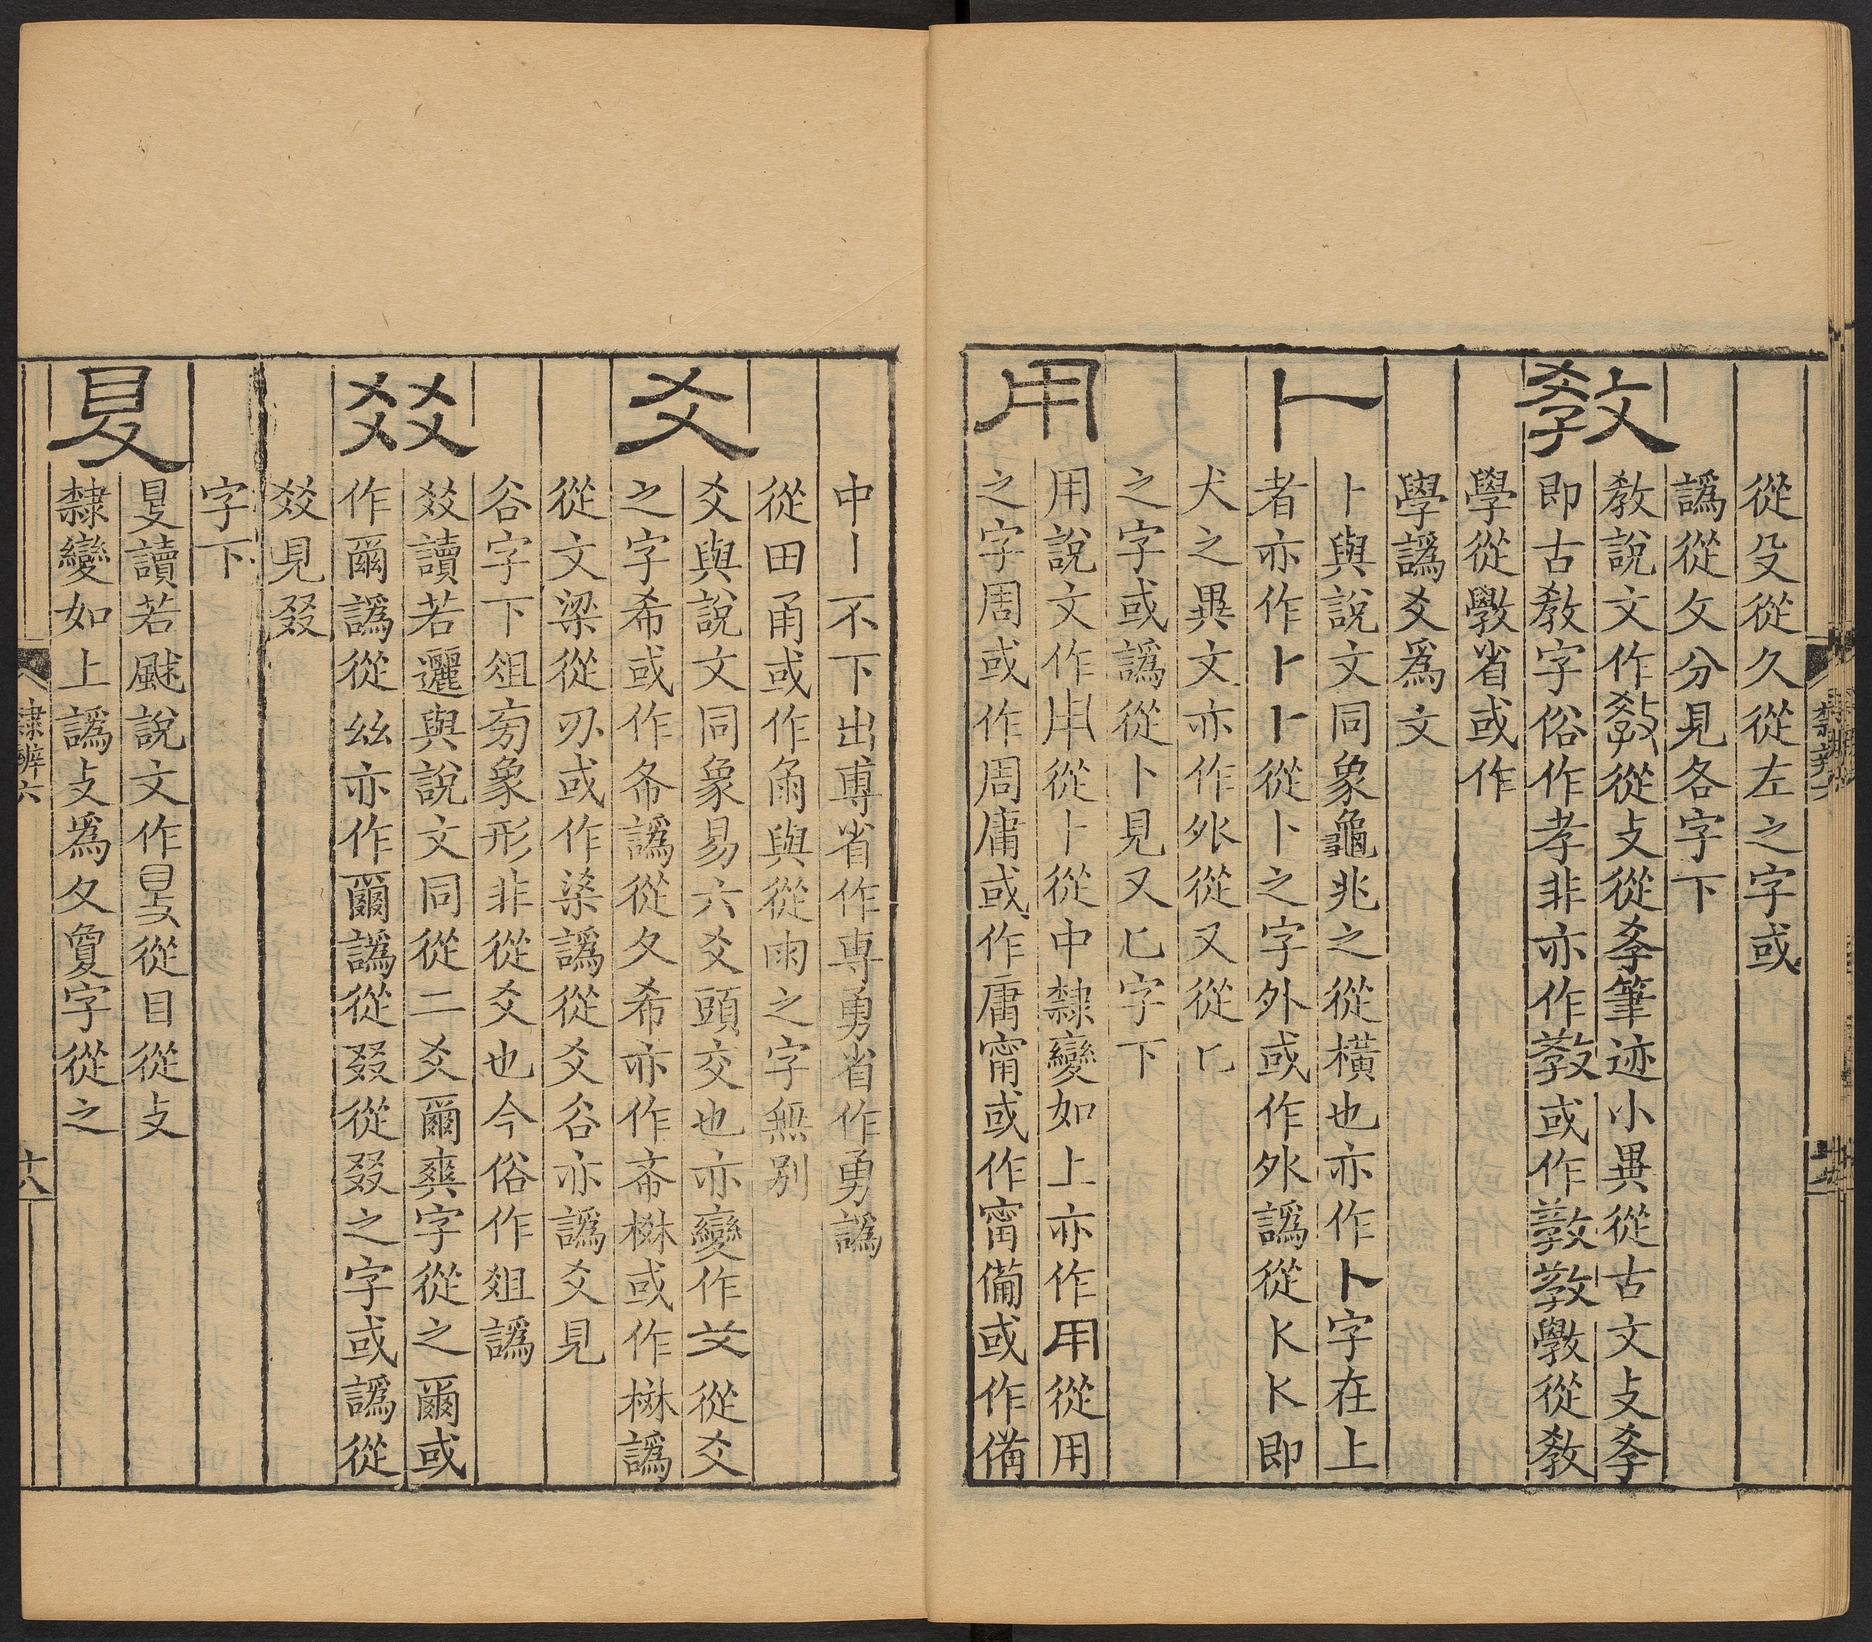 從殳從久從左之字或
譌從攵分見各字下
敎
教說文作敎從攴從𡥉筆迹小異從古文攴𡥉
即古教字俗作孝非亦作敎或作斆從敎
學從斆省或作
學譌爻爲文
卜
卜與說文同象龜兆之從橫也亦作卜字在上
者亦作⺊從卜之字外或作外譌從
犬之異文亦作外從又從
之字或譌從卜見又匕字下
用
用說文作用從卜從中隸變如上亦作用從用
之字周或作周庸或作庸甯或作甯備或作備
中丨不下出專省作専勇省作勇譌
從田甬或作角與從雨之字無別
爻
爻與說文同象易六爻頭交也亦變作从爻
之字希或作希譌從夂希亦作斎樊或作樊譌
從文梁從刅或作梁譌從爻谷亦譌爻見
谷字下俎肴象形非從爻也今俗作俎譌
㸚
㸚讀若邐與說文同從二爻爾爽字從之爾或
作爾譌從丝亦作爾譌從叕從叕之字或譌從
㸚見叕
字下
𥄎
𥄎讀若䫻說文作𥄎從目從攴
隸變如上譌攴爲夂敻字從之
隸辨六
十八